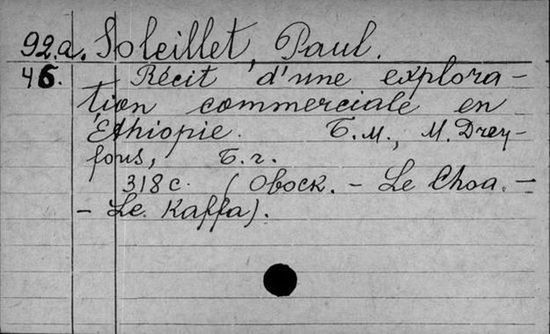 92.a. Soleillet, Paul.
45. Récit d'une explora-
tion commerciale en
Ethiopie. Б.м., M. Drey-
fous, Б.г.
318 с. (Obock. – Le Choa. –
– Le Kaffa).